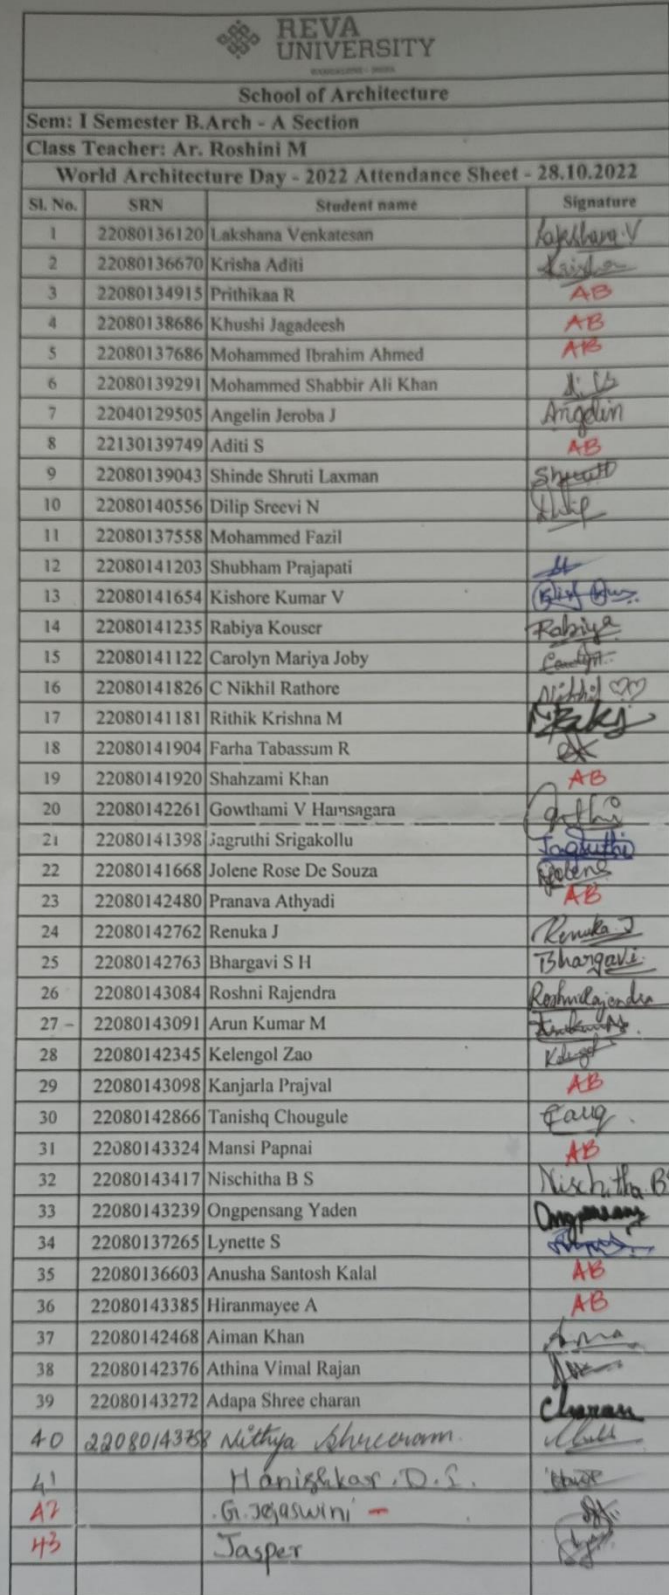 REVA
UNIVERSITY
School of Architecture
Sem: I Semester B.Arch - A Section
Class Teacher: Ar. Roshini M
World Architecture Day - 2022 Attendance Sheet - 28.10.2022
Sl. No. SRN Student name Signature
1 22080136120 Lakshana Venkatesan Lakshana.V
2 22080136670 Krisha Aditi
3 22080134915 Prithikaa R AB
4 22080138686 Khushi Jagadeesh AB
5 22080137686 Mohammed Ibrahim Ahmed AB
6 22080139291 Mohammed Shabbir Ali Khan
7 22040129505 Angelin Jeroba J Angelin
8 22130139749 Aditi S AB
9 22080139043 Shinde Shruti Laxman
10 22080140556 Dilip Sreevi N
11 22080137558 Mohammed Fazil
12 22080141203 Shubham Prajapati
13 22080141654 Kishore Kumar V
14 22080141235 Rabiya Kouser Rabiya
15 22080141122 Carolyn Mariya Joby
16 22080141826 C Nikhil Rathore Nikhil
17 22080141181 Rithik Krishna M
18 22080141904 Farha Tabassum R
19 22080141920 Shahzami Khan AB
20 22080142261 Gowthami V Hamsagara
21 22080141398 Jagruthi Srigakollu Jagruthi
22 22080141668 Jolene Rose De Souza
23 22080142480 Pranava Athyadi AB
24 22080142762 Renuka J Renuka J
25 22080142763 Bhargavi S H Bhargavi
26 22080143084 Roshni Rajendra RoshniRajendra
27 - 22080143091 Arun Kumar M
28 22080142345 Kelengol Zao
29 22080143098 Kanjarla Prajval AB
30 22080142866 Tanishq Chougule
31 22080143324 Mansi Papnai AB
32 22080143417 Nischitha B S Nischitha B
33 22080143239 Ongpensang Yaden
34 22080137265 Lynette S
35 22080136603 Anusha Santosh Kalal AB
36 22080143385 Hiranmayee A AB
37 22080142468 Aiman Khan
38 22080142376 Athina Vimal Rajan
39 22080143272 Adapa Shree charan Charan
40 Nithya Shreeram.
41 Hanishkar . D. S.
42 G. Tejaswini -
43 Jasper